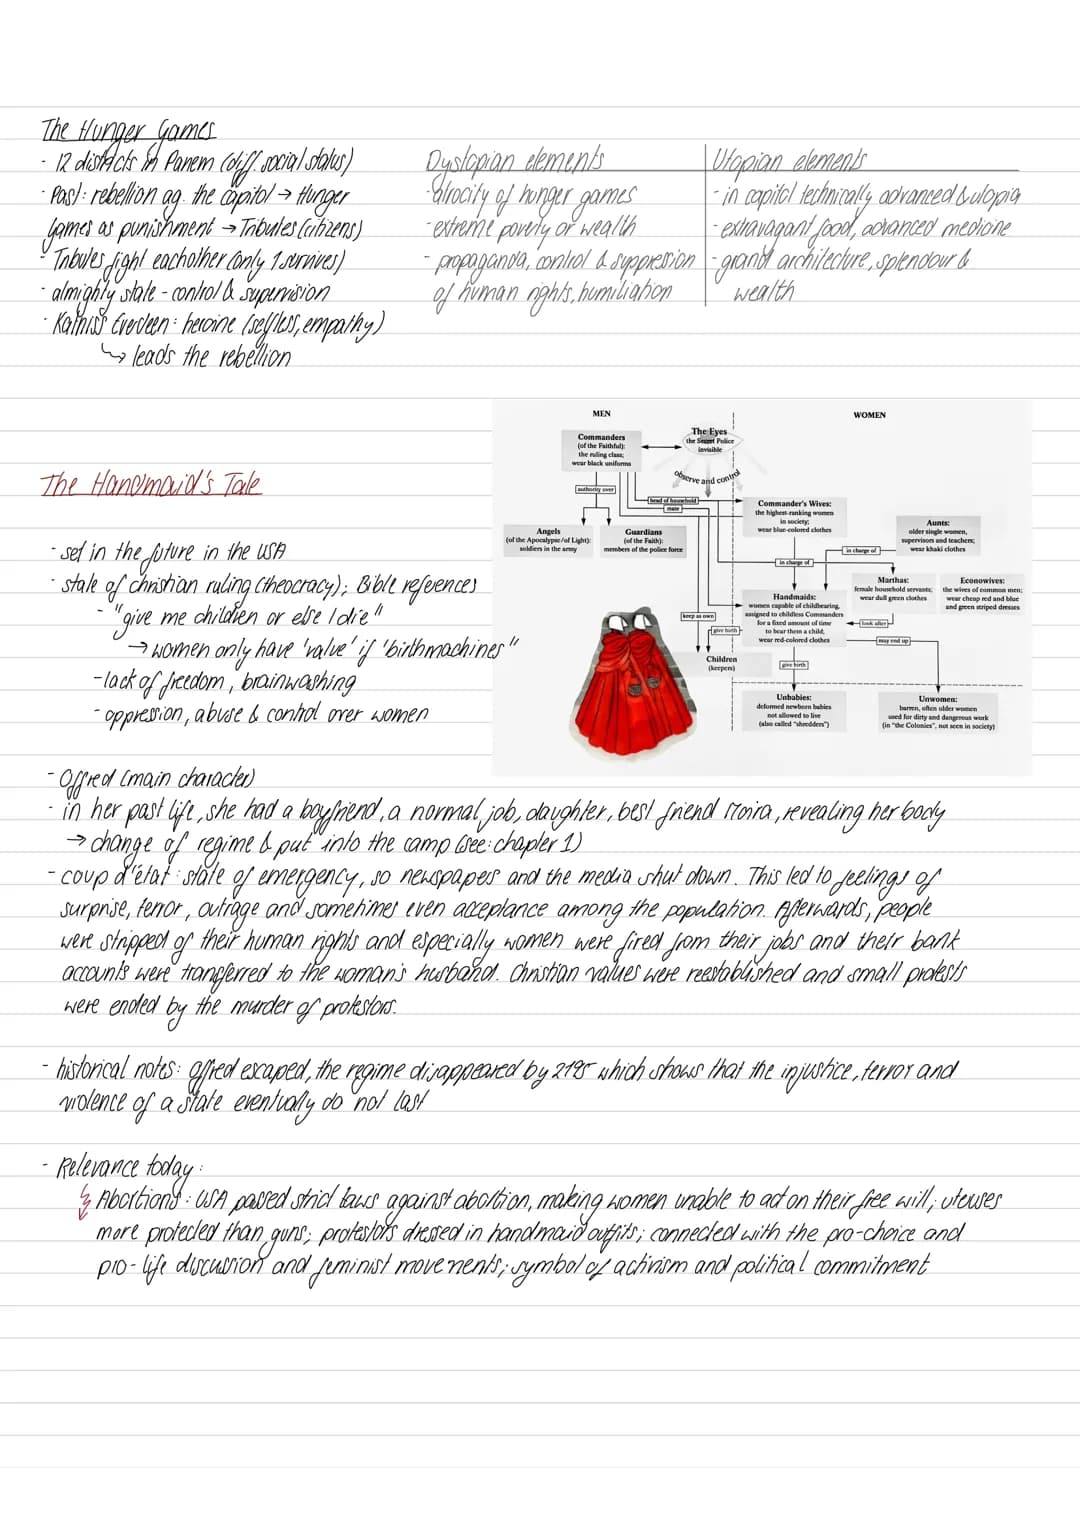 The Hunger Games
- 12 districts in Panem (diff. social status)
- Past: rebellion ag. the capitol → Hunger
games as punishment → Tributes (citizens)
- Tributes fight eachother (only 1 survives)
- almighty state - control & supervision
- Katniss Everdeen: heroine (selfless, empathy)
↳ leads the rebellion
Dystopian elements
- atrocity of hunger games
- extreme poverty or wealth
- propaganda, control & suppression
of human rights, humiliation
Utopian elements
- in capitol technically advanced & utopia
- extravagant food, advanced medicine
- grand architecture, splendour &
wealth
The Handmaid's Tale
- set in the future in the USA
- state of christian ruling (theocracy); Bible references
- "give me children or else I die"
→ women only have 'value' if 'birthmachines"
- lack of freedom, brainwashing
- oppression, abuse & control over women
MEN
WOMEN
Commanders
(of the Faithful):
the ruling class;
wear black uniforms
The Eyes
the Secret Police
invisible
observe and control
authority over
head of household
mate
Angels
(of the Apocalypse/of Light):
soldiers in the army
Guardians
(of the Faith):
members of the police force
Commander's Wives:
the highest-ranking women
in society;
wear blue-colored clothes
Aunts:
older single women,
supervisors and teachers;
wear khaki clothes
in charge of
in charge of
Marthas:
female household servants;
wear dull green clothes
Econowives:
the wives of common men;
wear cheap red and blue
and green striped dresses
Handmaids:
women capable of childbearing,
assigned to childless Commanders
for a fixed amount of time
to bear them a child;
wear red-colored clothes
look after
keep as own
give birth
may end up
Children
(keepers)
give birth
Unbabies:
deformed newborn babies
not allowed to live
(also called "shredders")
Unwomen:
barren, often older women
used for dirty and dangerous work
(in "the Colonies", not seen in society)
- Offred (main character)
- in her past life, she had a boyfriend, a normal job, daughter, best friend Moira, revealing her body
→ change of regime & put into the camp (see: chapter 1)
- coup d'état: state of emergency, so newspapes and the media shut down. This led to feelings of
surprise, terror, outrage and sometimes even acceptance among the population. Afterwards, people
were stripped of their human rights and especially women were fired from their jobs and their bank
accounts were transferred to the woman's husband. Christian values were reestablished and small protests
were ended by the murder of protestors.
- historical notes: offred escaped, the regime disappeared by 2195 which shows that the injustice, terror and
violence of a state eventually do not last
- Relevance today:
↳ Abortions: USA passed strict laws against abortion, making women unable to act on their free will; uteruses
more protected than guns; protestors dressed in handmaid outfits; connected with the pro-choice and
pro-life discussion and feminist movements; symbol of activism and political commitment